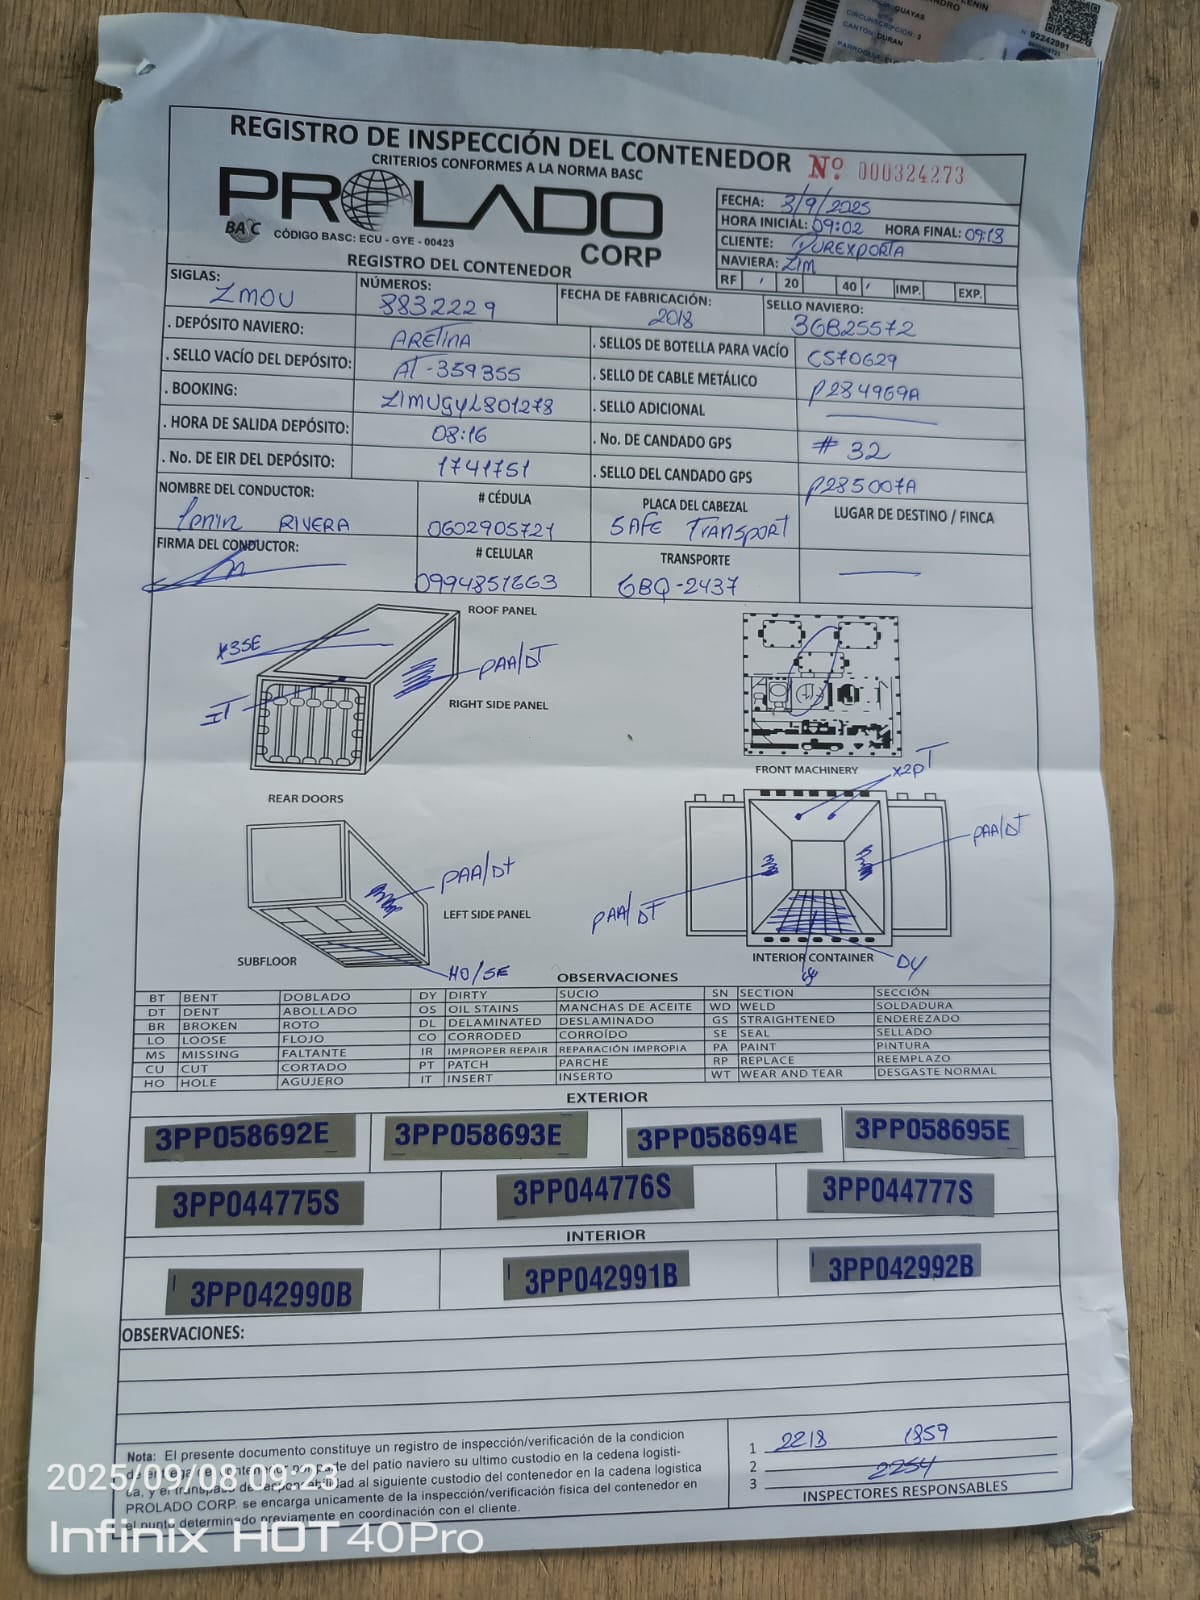 LENIN
GUAYAS
CIRCUNSCRIPCIÓN: 3
CANTÓN: DURAN
N 92242991
REGISTRO DE INSPECCIÓN DEL CONTENEDOR Nº. 000324273
CRITERIOS CONFORMES A LA NORMA BASC
PROLADO
CORP
BASC CÓDIGO BASC: ECU - GYE - 00423
FECHA: 8/9/2025
HORA INICIAL: 09:02 HORA FINAL: 09:18
CLIENTE: DUREXPORTA
NAVIERA: ZIM
RF 20 40 IMP. EXP.
REGISTRO DEL CONTENEDOR
SIGLAS: ZMOU
NÚMEROS: 8832229
FECHA DE FABRICACIÓN: 2018
SELLO NAVIERO: 3GB25572
. DEPÓSITO NAVIERO: ARETINA
. SELLOS DE BOTELLA PARA VACÍO C570629
. SELLO VACÍO DEL DEPÓSITO: AT-359355
. SELLO DE CABLE METÁLICO P284969A
. BOOKING: ZIMUGYL801278
. SELLO ADICIONAL
. HORA DE SALIDA DEPÓSITO: 08:16
. No. DE CANDADO GPS # 32
. No. DE EIR DEL DEPÓSITO: 1741751
. SELLO DEL CANDADO GPS P285007A
NOMBRE DEL CONDUCTOR: Lenin RIVERA
# CÉDULA 0602905721
PLACA DEL CABEZAL SAFE TRANSPORT
LUGAR DE DESTINO / FINCA
FIRMA DEL CONDUCTOR:
# CELULAR 0994851663
TRANSPORTE GBQ-2437
ROOF PANEL
x3SE
PAA/DT
IT
RIGHT SIDE PANEL
REAR DOORS
FRONT MACHINERY
x2PT
PAA/DT
PAA/DT
LEFT SIDE PANEL
PAA/DT
SUBFLOOR
HO/SE
INTERIOR CONTAINER
DY
OBSERVACIONES
BT BENT DOBLADO DY DIRTY SUCIO SN SECTION SECCIÓN
DT DENT ABOLLADO OS OIL STAINS MANCHAS DE ACEITE WD WELD SOLDADURA
BR BROKEN ROTO DL DELAMINATED DESLAMINADO GS STRAIGHTENED ENDEREZADO
LO LOOSE FLOJO CO CORRODED CORROÍDO SE SEAL SELLADO
MS MISSING FALTANTE IR IMPROPER REPAIR REPARACIÓN IMPROPIA PA PAINT PINTURA
CU CUT CORTADO PT PATCH PARCHE RP REPLACE REEMPLAZO
HO HOLE AGUJERO IT INSERT INSERTO WT WEAR AND TEAR DESGASTE NORMAL
EXTERIOR
3PP058692E 3PP058693E 3PP058694E 3PP058695E
3PP044775S 3PP044776S 3PP044777S
INTERIOR
3PP042990B 3PP042991B 3PP042992B
OBSERVACIONES:
Nota: El presente documento constituye un registro de inspección/verificación de la condicion
parte del patio naviero su ultimo custodio en la cedena logisti-
ca, y el al siguiente custodio del contenedor en la cadena logistica
PROLADO CORP. se encarga unicamente de la inspección/verificación fisica del contenedor en
el punto determinado previamente en coordinación con el cliente.
1 2218 1859
2 2254
3
INSPECTORES RESPONSABLES
2025/09/08 09:23
Infinix HOT 40Pro